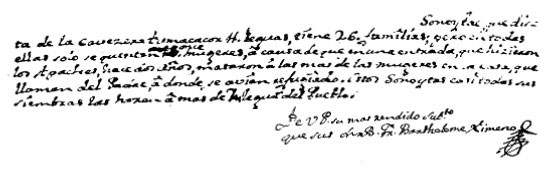 Sonoytac que dis-
ta de la Cavezera Tumacacori 11. leguas, tiene 26. familias; pero en todas
ellas solo se quentan mugeres, à causa de que en una entrada, que hizieron
los Apaches, hace dos años, mataron à las mas de las mugeres en la casa, que
llaman del Padre, à donde se avian refugiado. Estos Sonoytas casi todas sus
siembras las hazen à mas de leguas del Pueblo.
De V P. su mas rendido sub.to
que sus M. B. Fr. Bartholome Ximeno